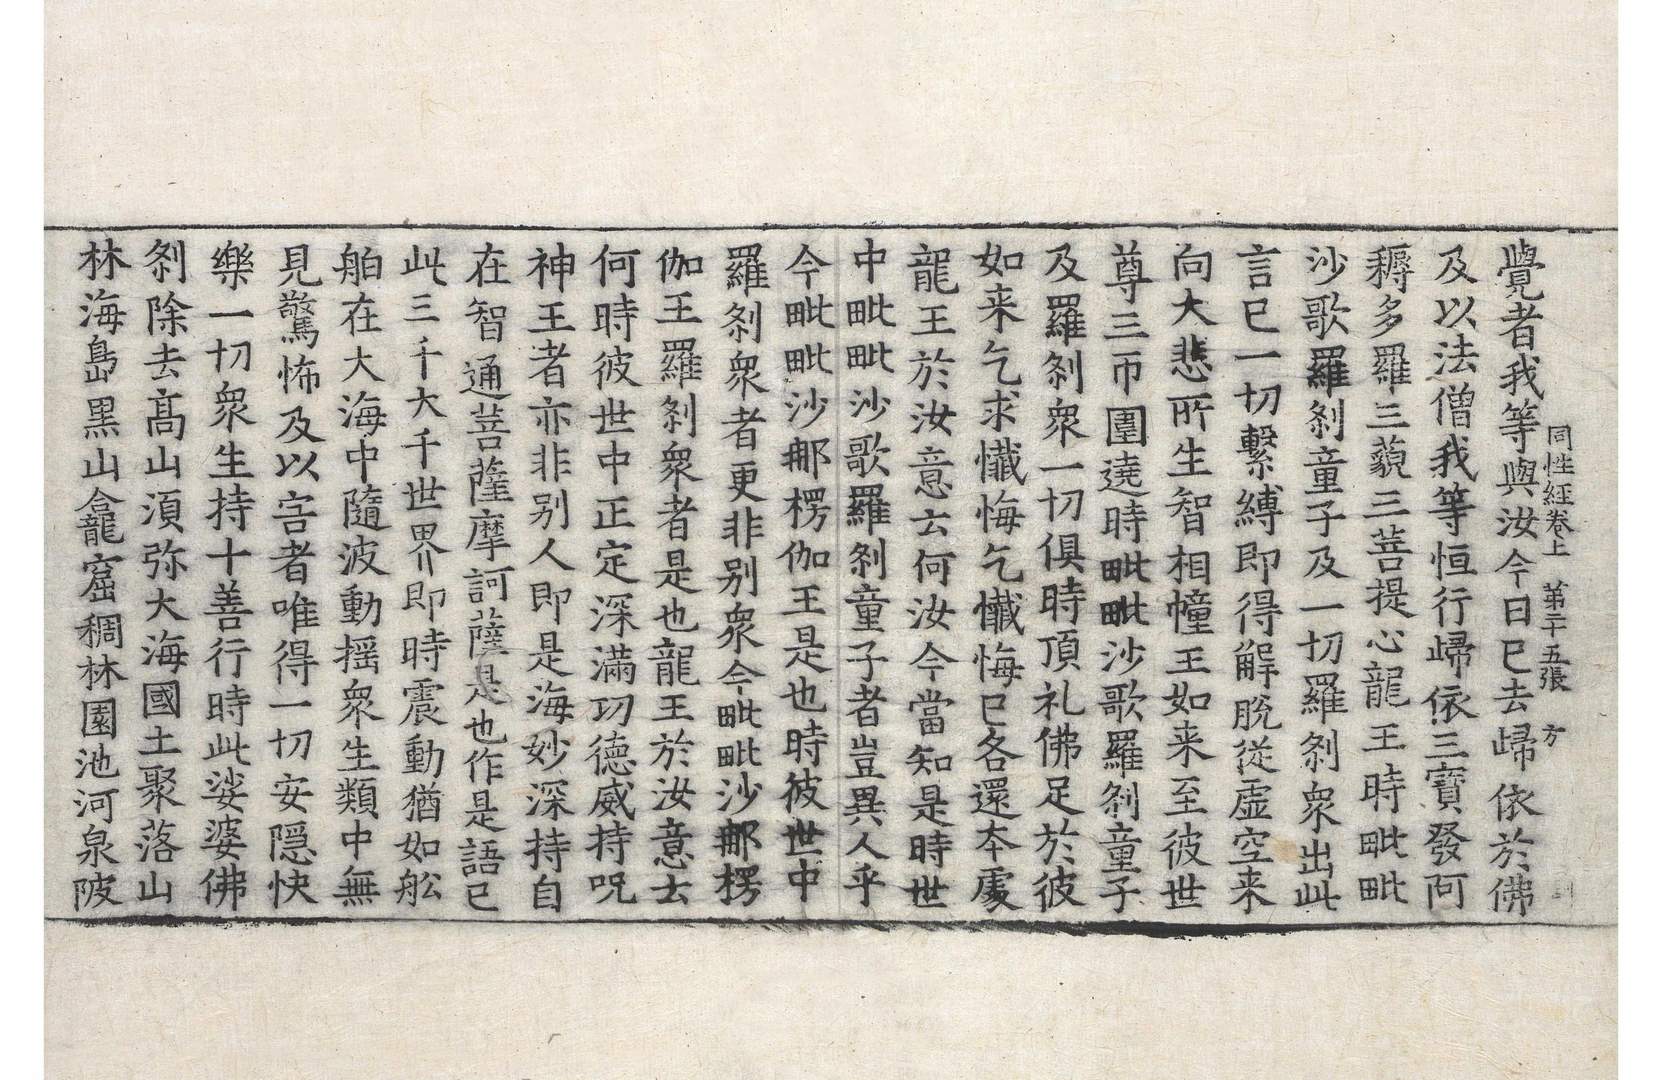 同性經卷上　第二十五張　方
覺者我等與汝今日已去歸依於佛
及以法僧我等恒行歸依三寶發阿
耨多羅三藐三菩提心龍王時毗毗
沙歌羅剎童子及一切羅剎衆出此
言已一切繫縛即得解脫從虛空来
向大悲所生智相幢王如来至彼世
尊三帀圍遶時毗毗沙歌羅剎童子
及羅剎衆一切俱時頂礼佛足於彼
如来乞求懺悔乞懺悔已各還本處
龍王於汝意云何汝今當知是時世
中毗毗沙歌羅剎童子者豈異人乎
今毗毗沙那楞伽王是也時彼世中
羅剎衆者更非別衆今毗毗沙那楞
伽王羅剎衆者是也龍王於汝意云
何時彼世中正定深滿功德威持呪
神王者亦非別人即是海妙深持自
在智通菩薩摩訶薩是也作是語已
此三千大千世界即時震動猶如舩
舶在大海中隨波動搖衆生類中無
見驚怖及以害者唯得一切安隱快
樂一切衆生持十善行時此娑婆佛
剎除去高山須弥大海國土聚落山
林海島黑山龕窟稠林園池河泉陂